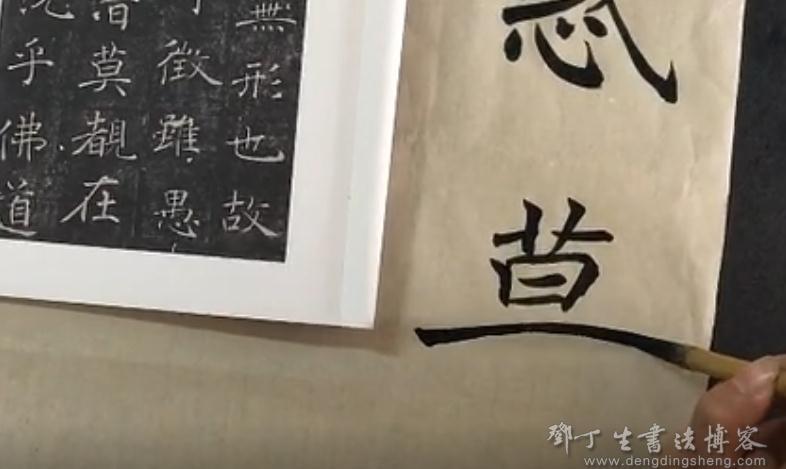 無形也故
徵雖愚
莫覩在
乎佛道
鄧丁生書法博客
www.dengdingsheng.com